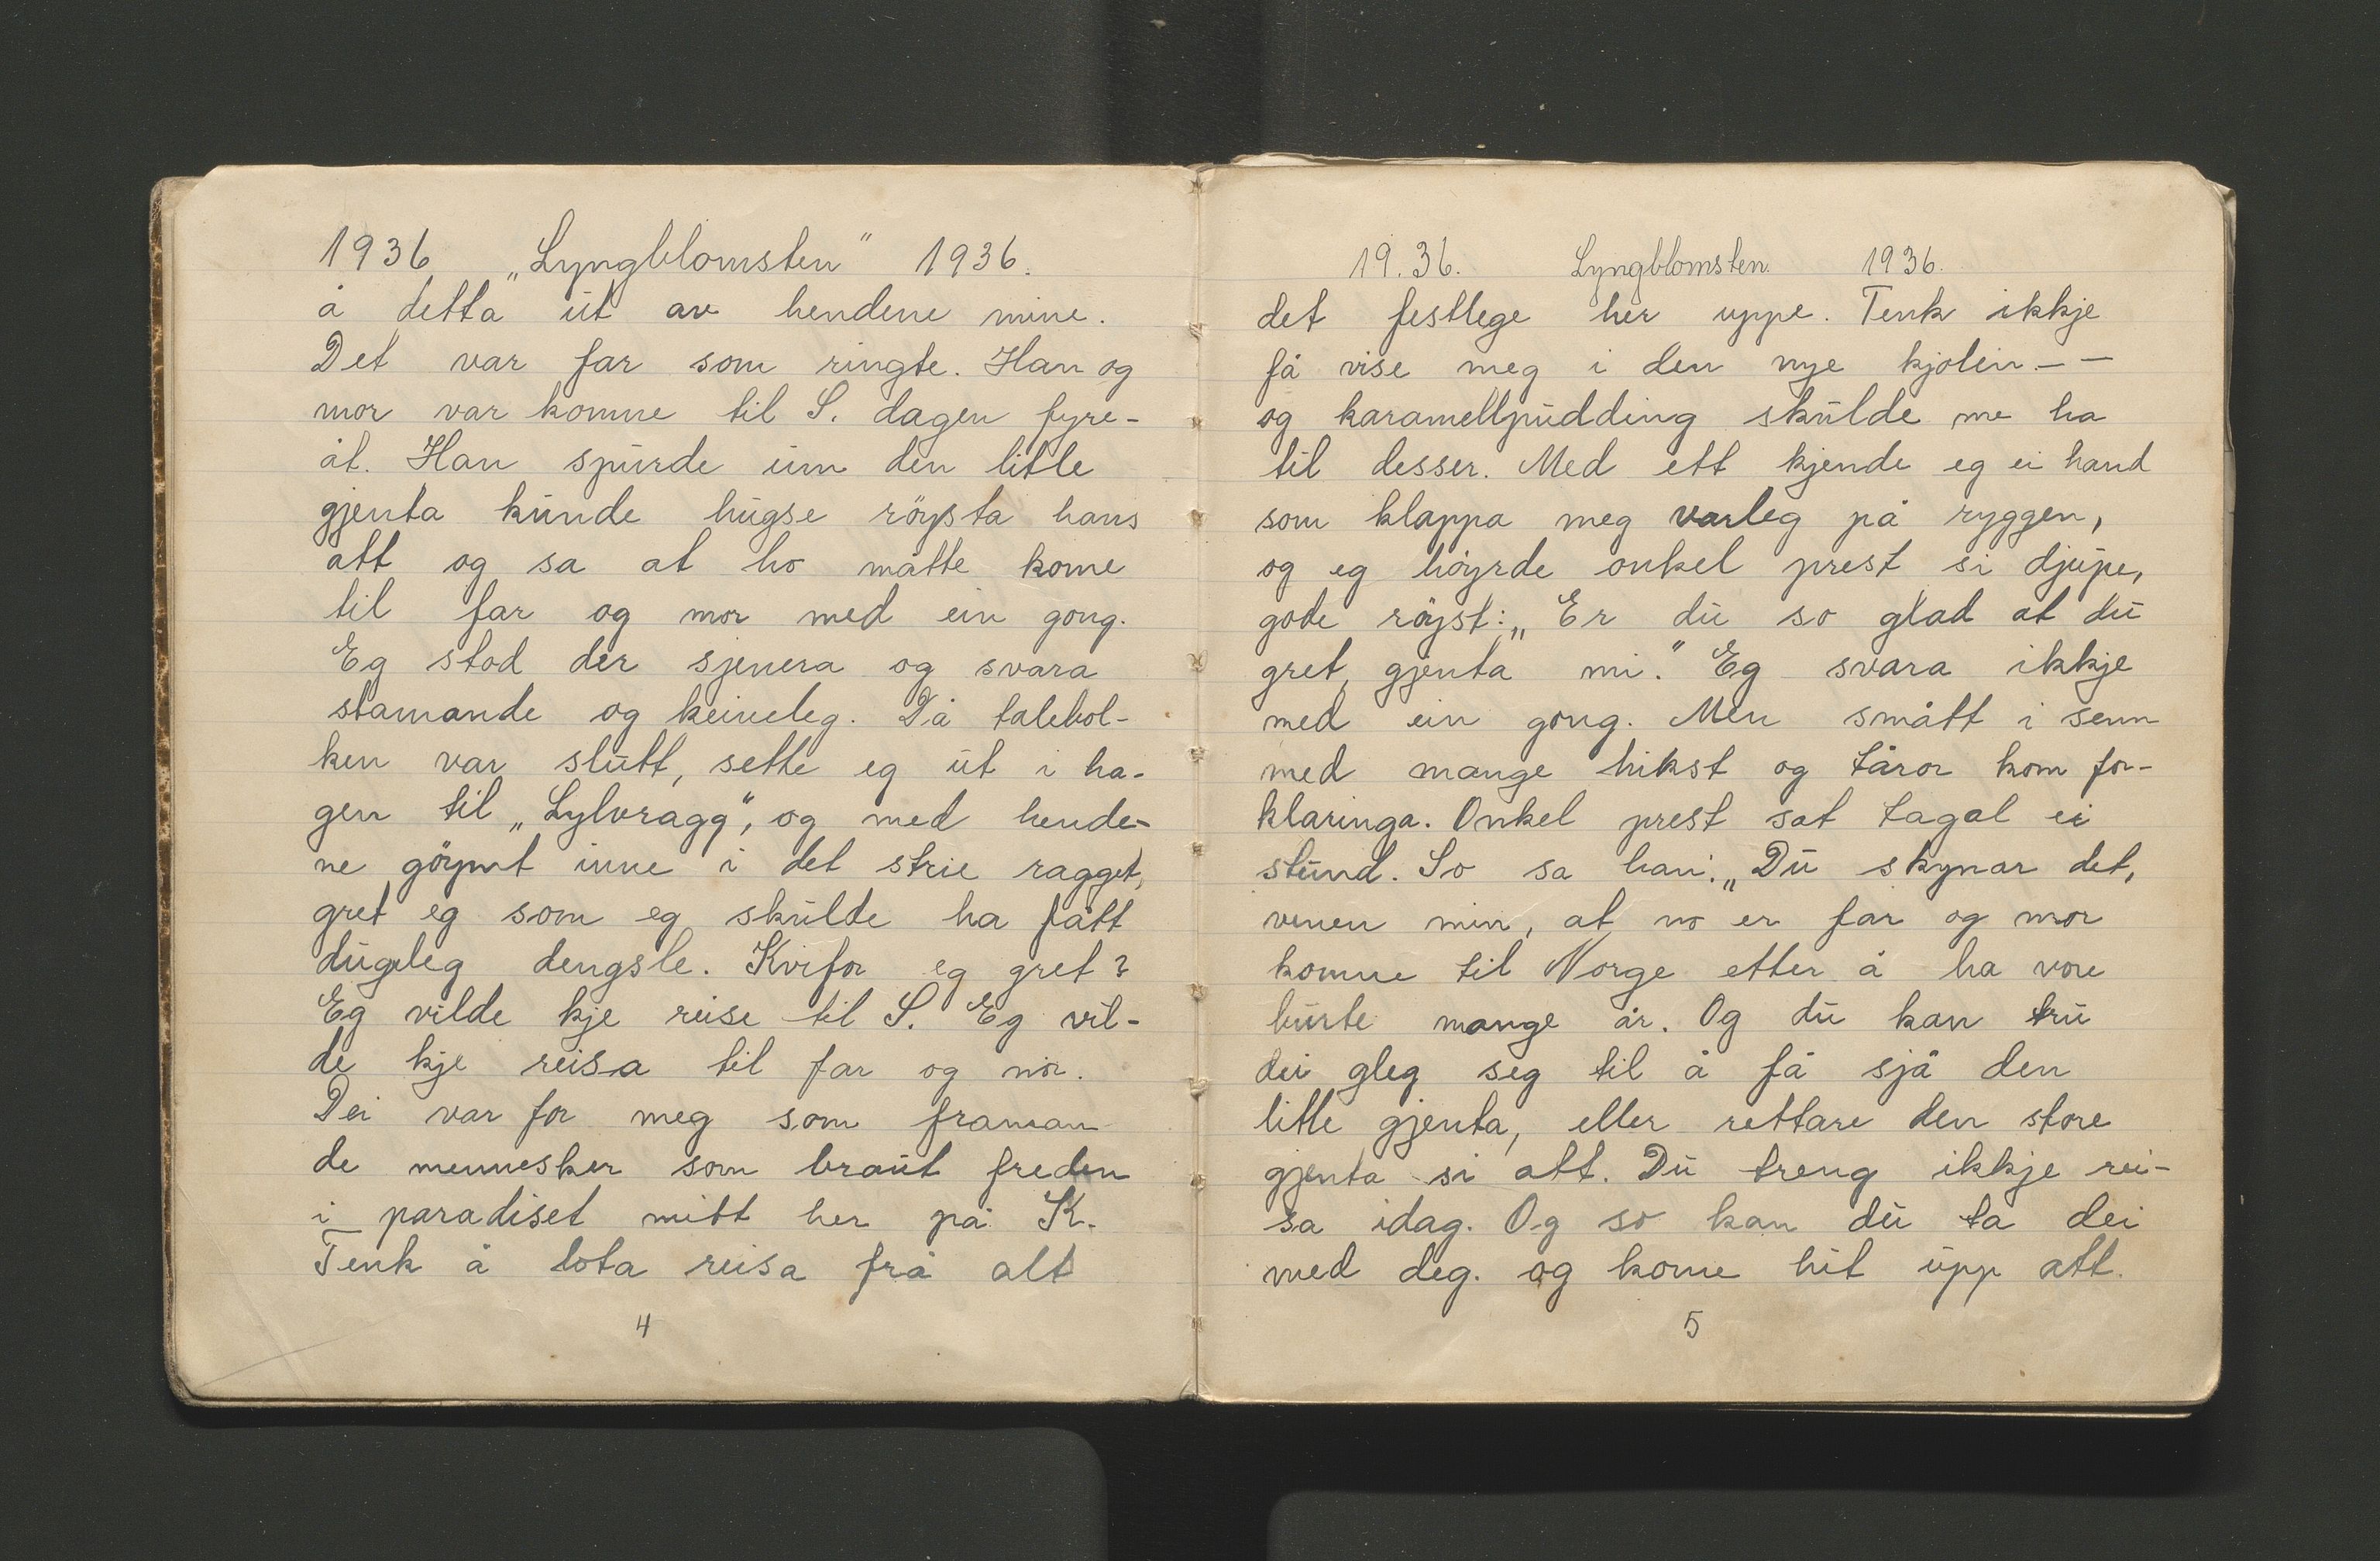 1936 „Lyngblomsten" 1936.
å detta ut av hendene mine.
Det var far som ringte. Han og
mor var komne til S. dagen fyre-
åt. Han spurde um den litle
gjenta kunde hugse röysta hans
att og sa at ho måtte kome
til far og mor med ein gong.
Eg stod der sjenera og svara
stamande og keiveleg. Då talebol-
ken var slutt, sette eg ut i ha-
gen til „Sylvragg", og med hende-
ne göymt inne i det strie ragget,
gret eg som eg skulde ha fått
dugeleg dengsle. Kvifor eg gret?
Eg vilde kje reise til S. Eg vil-
de kje reisa til far og mor.
Dei var for meg som framan
de mennesker som braut freden
i paradiset mitt her på K.
Tenk å lota reisa frå alt
4
19.36. Lyngblomsten. 1936.
det festlege her uppe. Tenk ikkje
få vise meg i den nye kjolin. - -
og karamellpudding skulde me ha
til desser. Med ett kjende eg ei hand
som klappa meg varleg på ryggen,
og eg höyrde onkel prest si djupe,
gode röyst: „Er du so glad at du
gret, gjenta mi." Eg svara ikkje
med ein gong. Men smått i senn
med mange hikst og tåror kom for-
klaringa. Onkel prest sat tagal ei
stund. So sa han: „Du skynar det,
venen min, at no er far og mor
komne til Norge etter å ha vore
burte mange år. Og du kan tru
dei gleg seg til å få sjå den
litle gjenta, eller rettare den store
gjenta si att. Du treng ikkje rei-
sa idag. Og so kan du ta dei
med deg. og kome hit upp att.
5